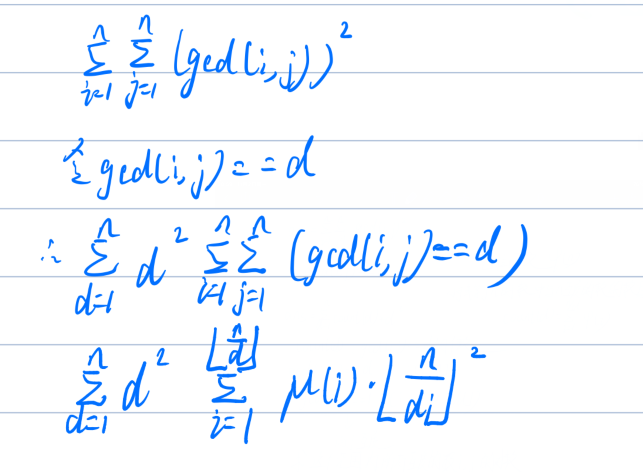 \sum_{i=1}^{n} \sum_{j=1}^{n} (gcd(i,j))^2
令 gcd(i,j)==d
∴ \sum_{d=1}^{n} d^2 \sum_{i=1}^{n} \sum_{j=1}^{n} (gcd(i,j)==d)
\sum_{d=1}^{n} d^2 \sum_{i=1}^{\lfloor \frac{n}{d} \rfloor} μ(i)·\lfloor \frac{n}{di} \rfloor^2